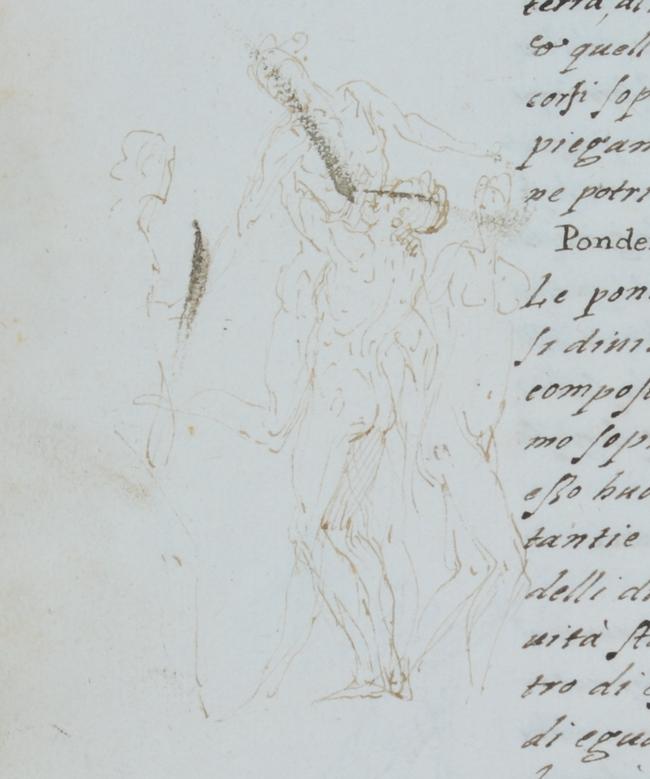 terra, di
& quell
corsi sop
piegam
ne potr
Ponde
Le pon
si diui
compos
mo sop
esso huo
tantie
delli d
uità st
tro di
di egua